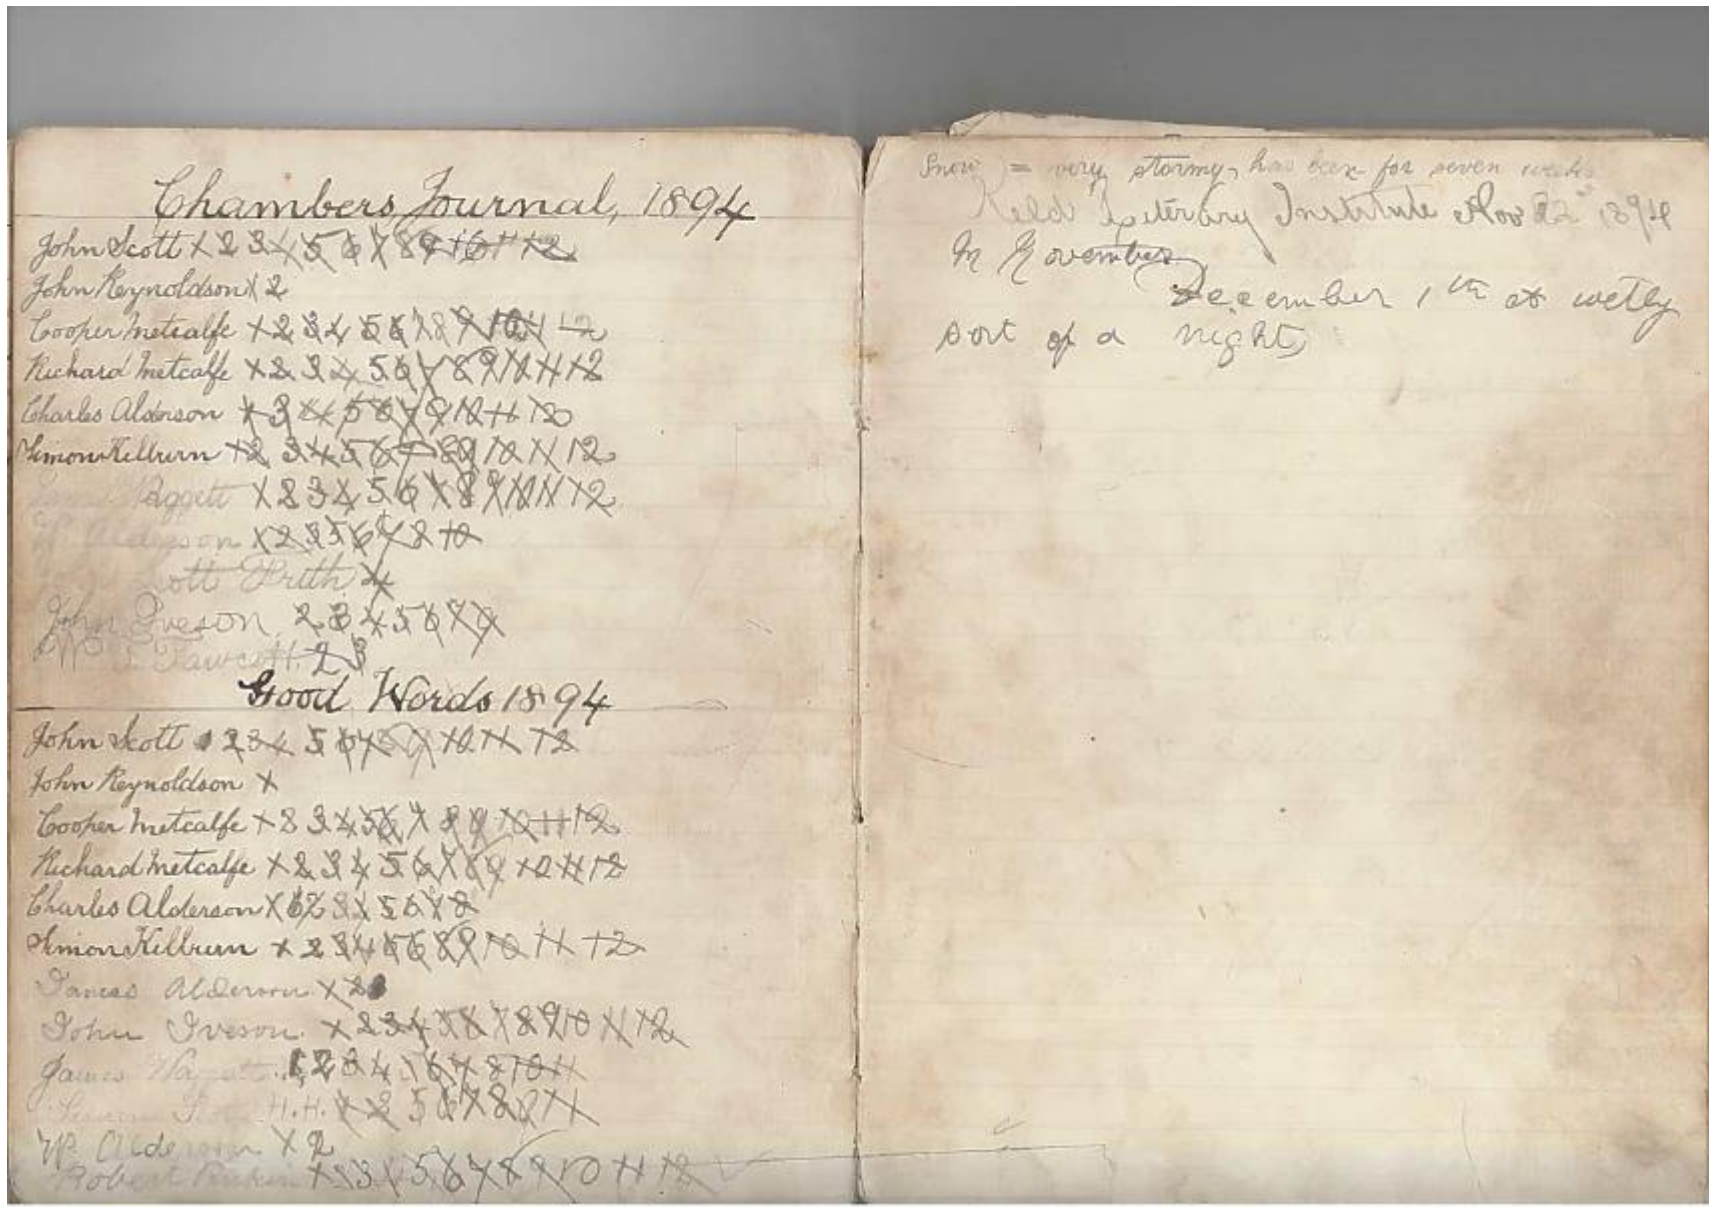 Chambers Journal, 1894
John Scott X 2 3 4 5 6 7 8 9 10 11 12
John Reynoldson X 2
Cooper Metcalfe X 2 3 4 5 6 7 8 9 10 11 12
Richard Metcalfe X 2 3 4 5 6 7 8 9 10 11 12
Charles Alderson X 3 4 5 6 7 9 10 11 12
Simon Kilburn X 2 3 4 5 6 7 8 9 10 11 12
Waggett X 2 3 4 5 6 7 8 9 10 11 12
W. Alderson X 2 3 5 6 7 8 10
Scott Frith 4
John Iveson 2 3 4 5 6 7 9
Fawcett 2 3
Good Words 1894
John Scott 2 3 4 5 6 7 8 9 10 11 12
John Reynoldson X
Cooper Metcalfe X 2 3 4 5 6 7 8 9 10 11 12
Richard Metcalfe X 2 3 4 5 6 7 8 9 10 11 12
Charles Alderson X 3 4 5 6 7 8
Simon Kilburn X 2 3 4 5 6 8 9 10 11 12
James Alderson X 2
John Iveson X 2 3 4 5 6 7 8 9 10 11 12
James Waggett 1 2 3 4 6 7 8 10 11
H.H. X 2 5 6 7 8 11
W. Alderson X 2
Robert X 3 4 5 6 7 8 9 10 11 12
Snow = very stormy, has been for seven weeks
Keld Literary Institute Nov 22 1894
In November
December 1th at wetly
sort of a night